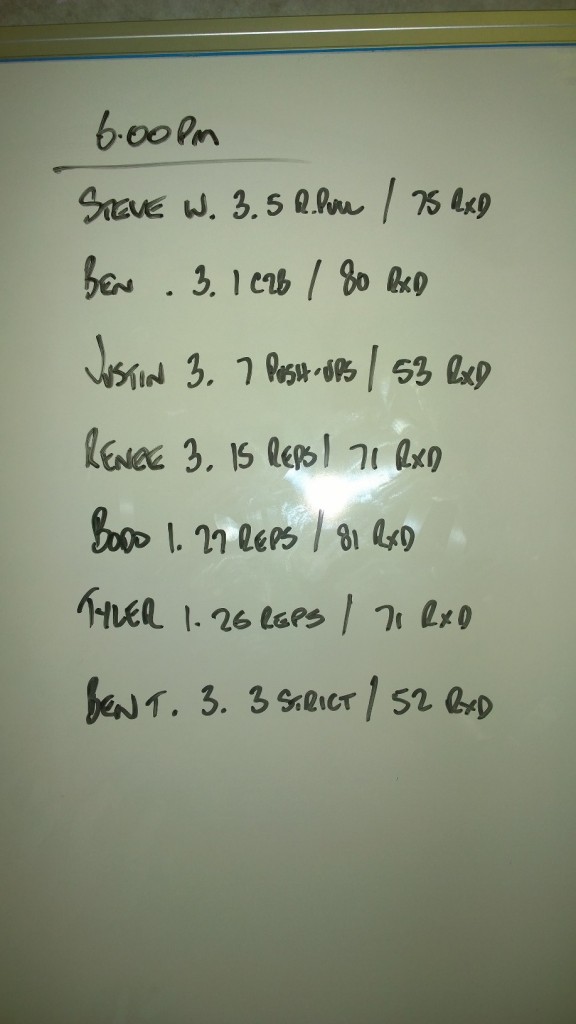 6.00 Pm
STEVE W. 3. 5 R.PULL / 75 RXD
BEN . 3. 1 C2B / 80 RXD
JUSTIN 3. 7 PUSH-UPS / 53 RXD
RENEE 3. 15 REPS / 71 RXD
BODO 1. 27 REPS / 81 RXD
TYLER 1. 26 REPS / 71 RXD
BEN T. 3. 3 STRICT / 52 RXD